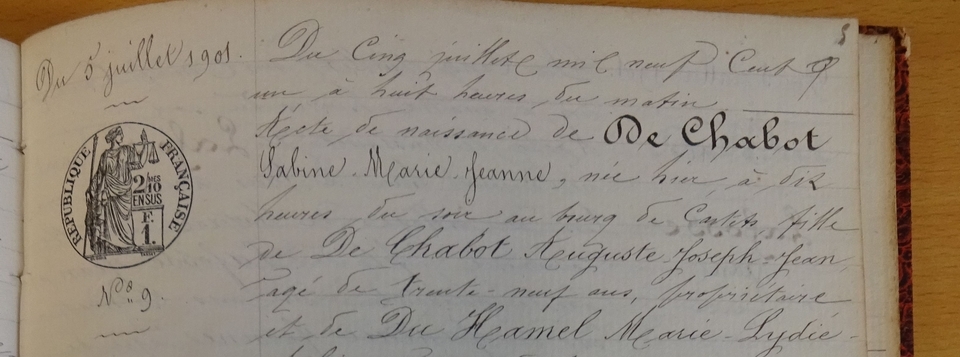 5
Du 5 juillet 1901.
RÉPUBLIQUE FRANÇAISE
2/10es
EN SUS
F
1.
Nos 9.
Du Cinq juillet mil neuf Cent
un à huit heures du matin
Acte de naissance de De Chabot
Sabine-Marie-Jeanne, née hier, à dix
heures du soir au bourg de Castets fille
de De Chabot Auguste-Joseph-Jean
agé de trente-neuf ans, propriétaire
et de Du Hamel Marie-Lydie-